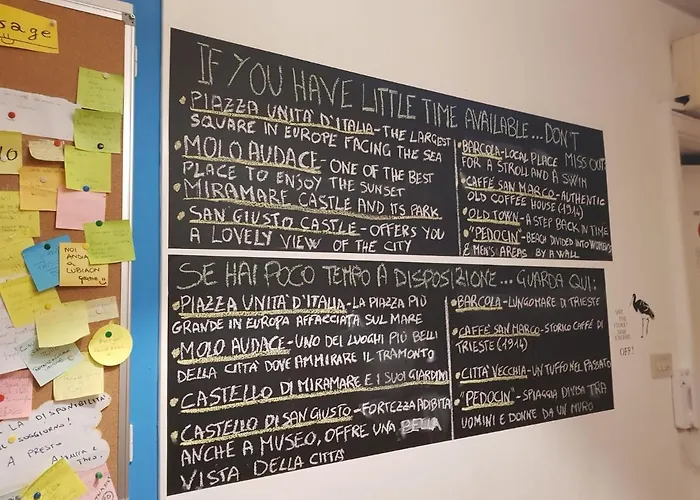 sage
IF YOU HAVE LITTLE TIME AVAILABLE... DON'T
MISS OUT:
• PIAZZA UNITA D'ITALIA - THE LARGEST
SQUARE IN EUROPE FACING THE SEA
• MOLO AUDACE - ONE OF THE BEST
PLACE TO ENJOY THE SUNSET
• MIRAMARE CASTLE AND ITS PARK
• SAN GIUSTO CASTLE - OFFERS YOU
A LOVELY VIEW OF THE CITY
• BARCOLA - LOCAL PLACE
FOR A STROLL AND A SWIM
• CAFFÈ SAN MARCO - AUTHENTIC
OLD COFFEE HOUSE (1914)
• OLD TOWN - A STEP BACK IN TIME
• "PEDOCIN" - BEACH DIVIDED INTO WOMEN'S
& MEN'S AREAS BY A WALL
SE HAI POCO TEMPO A DISPOSIZIONE... GUARDA QUI:
• PIAZZA UNITA' D'ITALIA - LA PIAZZA PIÙ
GRANDE IN EUROPA AFFACCIATA SUL MARE
• MOLO AUDACE - UNO DEI LUOGHI PIÙ BELLI
DELLA CITTA' DOVE AMMIRARE IL TRAMONTO
• CASTELLO DI MIRAMARE E I SUOI GIARDINI
• CASTELLO DI SAN GIUSTO - FORTEZZA ADIBITA
ANCHE A MUSEO, OFFRE UNA BELLA
VISTA DELLA CITTÀ
• BARCOLA - LUNGOMARE DI TRIESTE
• CAFFÈ SAN MARCO - STORICO CAFFÈ DI
TRIESTE (1914)
• CITTA' VECCHIA - UN TUFFO NEL PASSATO
• "PEDOCIN" - SPIAGGIA DIVISA TRA
UOMINI E DONNE DA UN MURO
NOI
ANDIA
a
LUBIACN
LA DISPONIBILITA'
SOGGIORNO!
A PRESTO